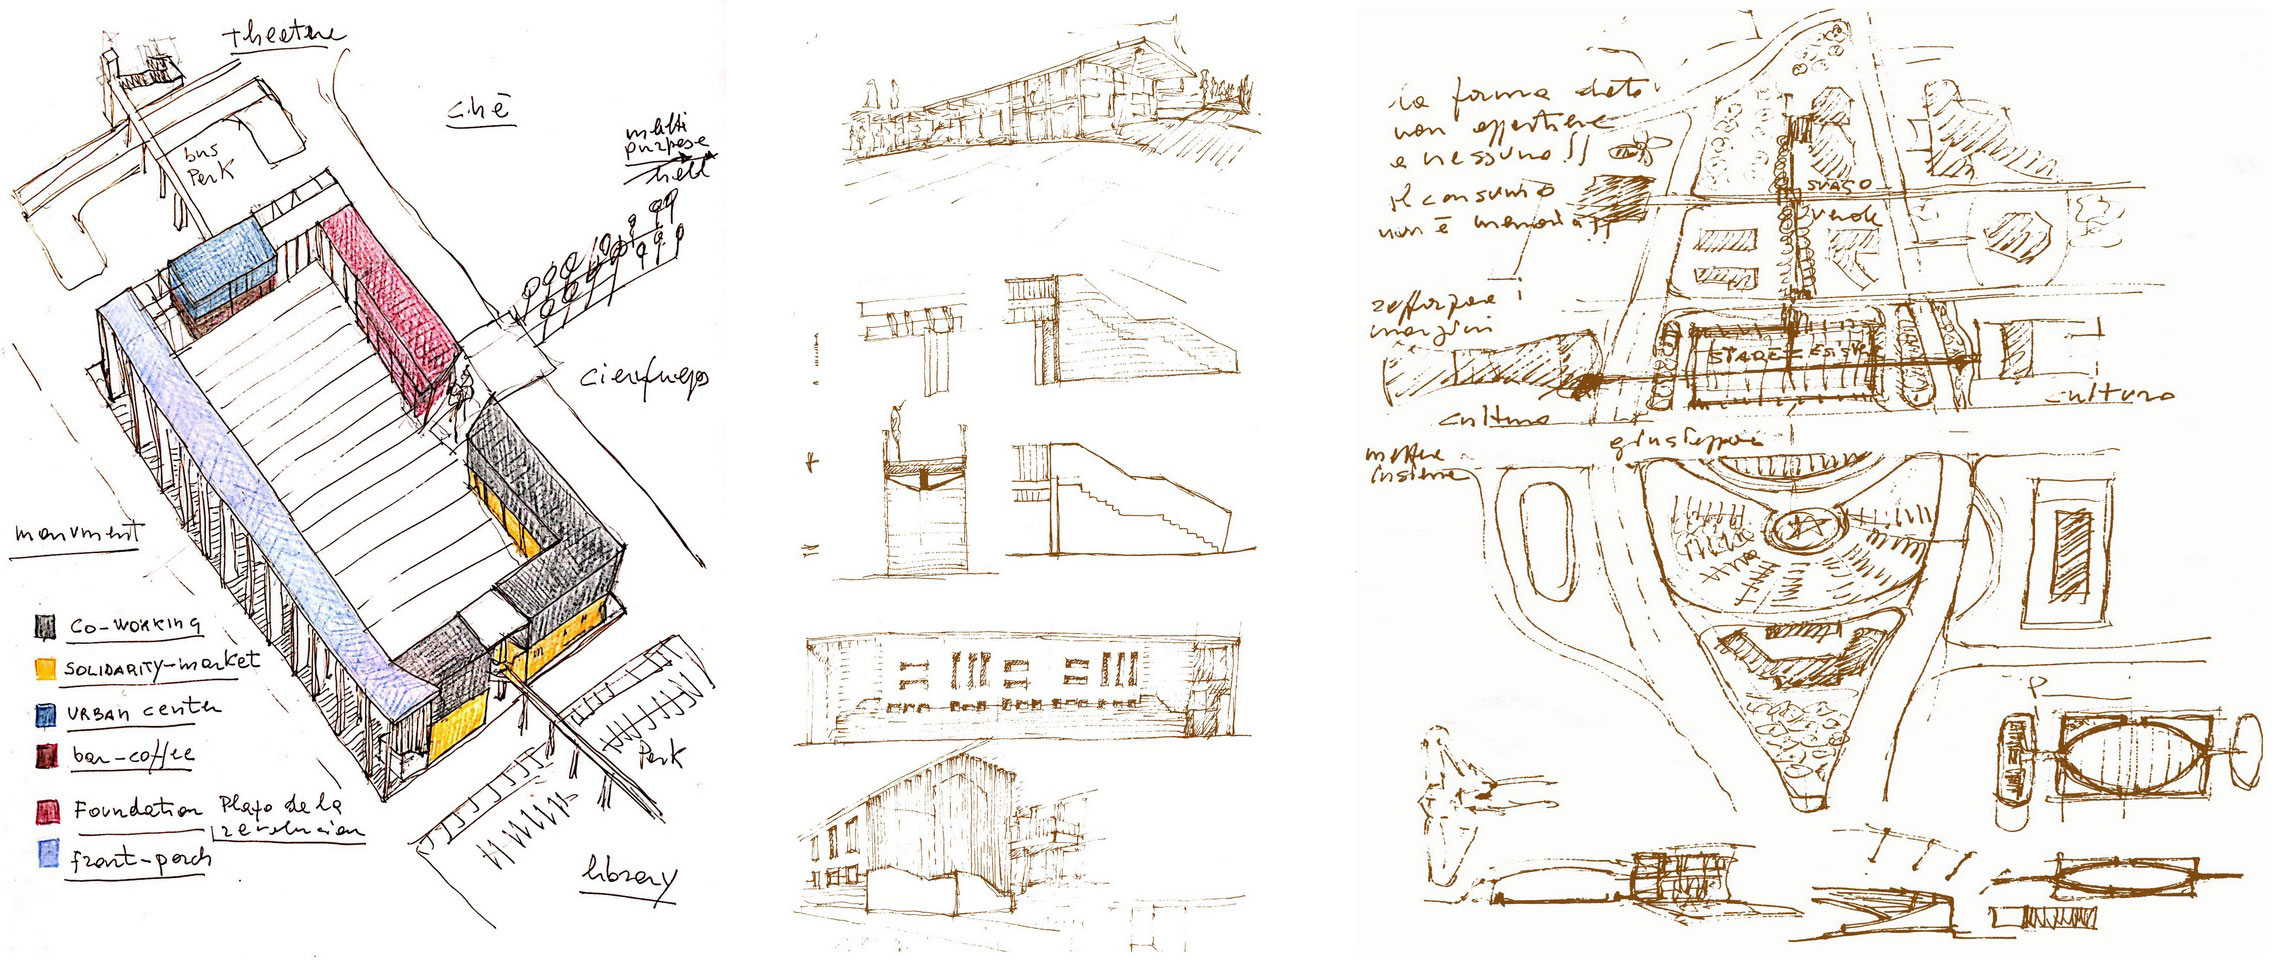 theatre
chè
multi
purpose
field
bus
Park
cienfuegos
monument
co-working
SOLIDARITY-market
URBAN center
bar-coffee
Foundation Plaza de la
revolucion
front-porch
Park
library
la forma data
non appartiene
a nessuno!!
il consumo
non è memoria!!
SVAGO
verde
rafforzare i
margini
cultura
cultura
mettere
insieme
P